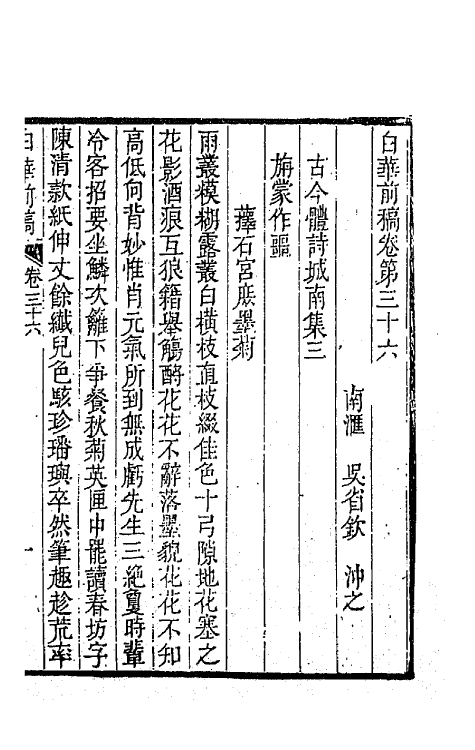 白華前稿卷第三十六
南滙 吳省欽 沖之
古今體詩城南集三
旃蒙作噩
蘀石宮庶墨菊
雨叢模糊露叢白橫枝直枝綴佳色十弓隙地花塞之
花影酒痕互狼籍舉觴酹花花不辭落墨貌花花不知
高低向背妙惟肖元氣所到無成虧先生三絶敻時輩
冷客招要坐鱗次籬下爭餐秋菊英匣中罷讀春坊字
陳清款紙伸丈餘纖兒色駭珍璠璵卒然筆趣趁荒率
白華前稿 卷三十六 一